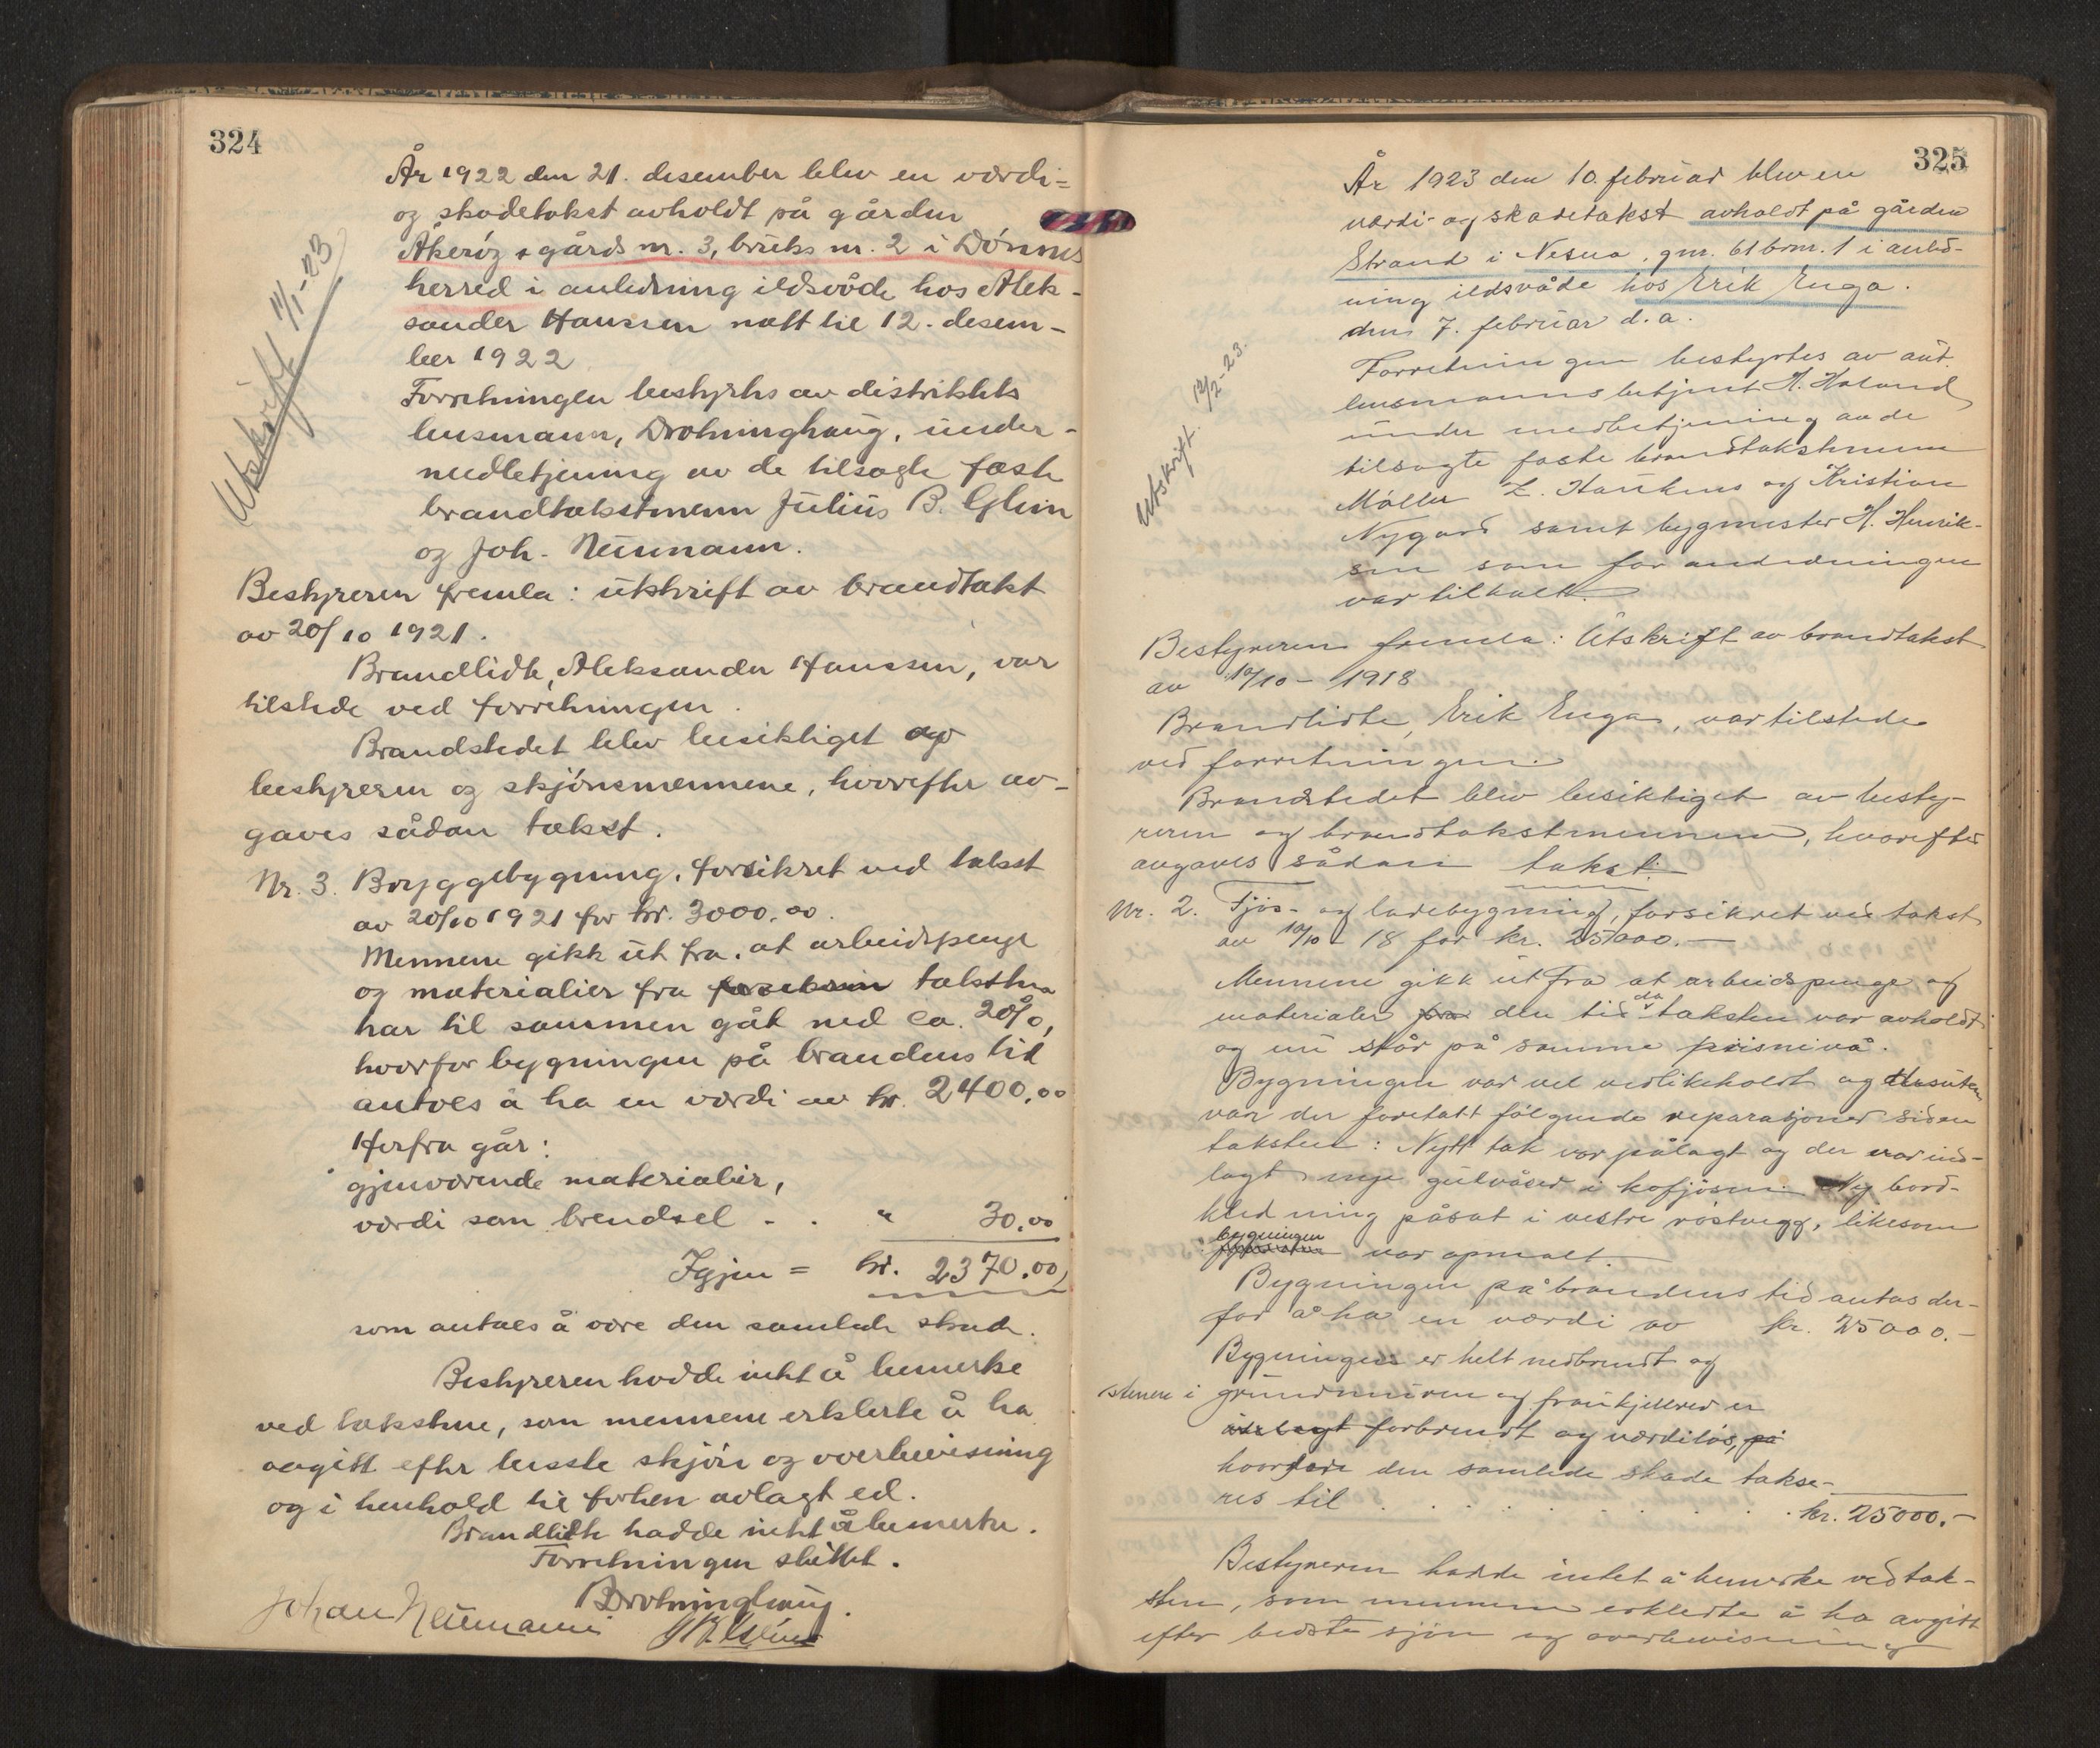 324
Utskrift 11/1-23
År 1922 den 21. desember blev en værdi=
og skadetakst avholdt på gården
Åkerøy, gårds nr. 3, bruks nr. 2 i Dønnes
herred i anledning ildsvåde hos Alek-
sander Hanssen natt til 12. desem-
ber 1922
Forretningen bestyrtes av distriktets
lensmann, Drotninghaug, under-
medbetjening av de tilsagte faste
brandtakstmenn Julius B. Glein
og Joh. Neumann.
Bestyreren fremla: utskrift av brandtakst
av 20/10 1921.
Brandlidte, Aleksander Hanssen, var
tilstede ved forretningen.
Brandstedet blev besiktiget av
bestyreren og skjønsmennene, hvorefter av-
gaves sådan takst.
Nr. 3. Bryggebygning, forsikret ved takst
av 20/10 1921 for kr. 3000.00.
Mennene gikk ut fra, at arbeidspenge
og materialier fra taksten
har til sammen gåt ned ca. 20%,
hvorfor bygningen på brandens tid
antaes å ha en værdi av kr. 2400.00
Herfra går:
gjenværende materialier,
værdi som brendsel - . " 30.00
Igjen = kr. 2370.00,
som antaes å være den samlede skade.
Bestyreren hadde intet å bemerke
ved takstene, som mennene erklerte å ha
avgitt efter beste skjøn og overbevisning
og i henhold til forhen avlagt ed.
Brandlidte hadde intet å bemerke.
Forretningen sluttet.
Drotninghaug.
Johan Neumann JB Glein
325
Utskrift. 12/2-23.
År 1923 den 10. februar blev en
værdi- og skadetakst avholdt på gården
Strand i Nesna, gnr. 61 brnr. 1 i anled-
ning ildsvåde hos Erik Enga.
den 7. februar d.a.
Forretningen bestyrtes av aut.
lensmannsbetjent H. Haland
under medbetjening av de
tilsagte faste brandtakstmenn
Møller Z. Hankens og Kristian
Nygård samt bygmester H. Henrik-
sen som for anledningen
var tilkalt.
Bestyreren fremla: Utskrift av brandtakst
av 10/10 - 1918
Brandlidte, Erik Enga, var tilstede
ved forretningen.
Brandstedet blev besiktiget av besty-
reren og brandtakstmennene, hvorefter
avgaves sådan takst:
Nr. 2. Fjøs- og ladebygning, forsikret ved takst
av 10/10 - 18 for kr. 25000.-
Mennene gikk ut fra at arbeidspenge og
materialer fra den tid da taksten var avholdt
og nu står på samme prisnivå.
Bygningen var vel vedlikeholdt og desuten
var der foretatt følgende reparasjoner siden
taksten: Nytt tak var pålagt og der var ind-
lagt nye gulvåser i kofjøsen. Ny bord-
kledning påsat i vestre røstvegg, likesom
bygningen var opmalt.
Bygningen på brandens tid antas der-
for å ha en værdi av kr. 25000.-
Bygningen er helt nedbrendt og
stenene i grundmuren og frankjelleren er
ødelagt forbrendt og værdiløs, på
hvorfor den samlede skade takse-
res til . . . . . . . . . kr. 25000.-
Bestyreren hadde intet å bemerke ved tak-
sten, som mennene erklerte å ha avgitt
efter bedste sjøn og overbevisning